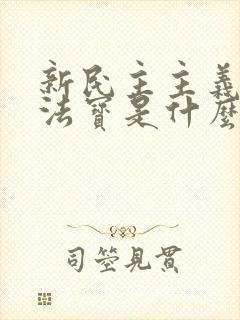 新民主主義
法寶是什麼
司箜見貫